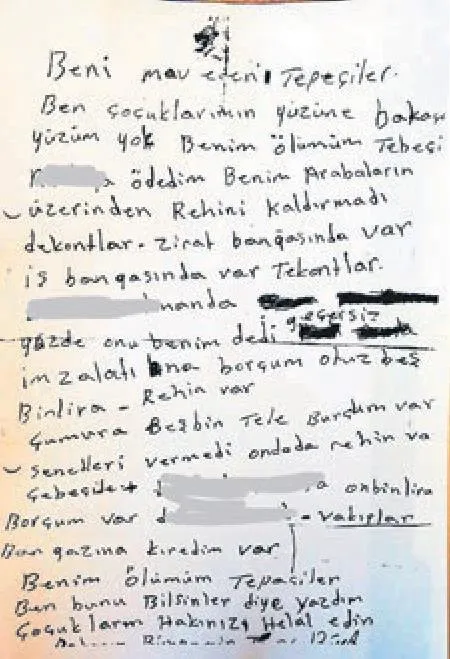 Beni mav edeni Tepeçiler.
Ben çocuklarımın yüzüne bakacı
yüzüm yok Benim ölümüm Tebeçi
ödedim Benim Arabaların
üzerinden Rehini kaldırmadı
dekontlar. zirat banğasında var
iş bangasında var Tekontlar.
geçersiz
yüzde onu benim dedi
imzalatı ona borçum otuz beş
Binlira - Rehin var
Beşbin Tele Burcum var
senetleri vermedi ondada rehin va
onbinlira
Borçum var - vakıplar
Ban gazına kıredim var
Benim ölümüm Tepaçiler
Ben bunu Bilsinler diye yazdım
Çocuklarm Hakınızı Helal edin